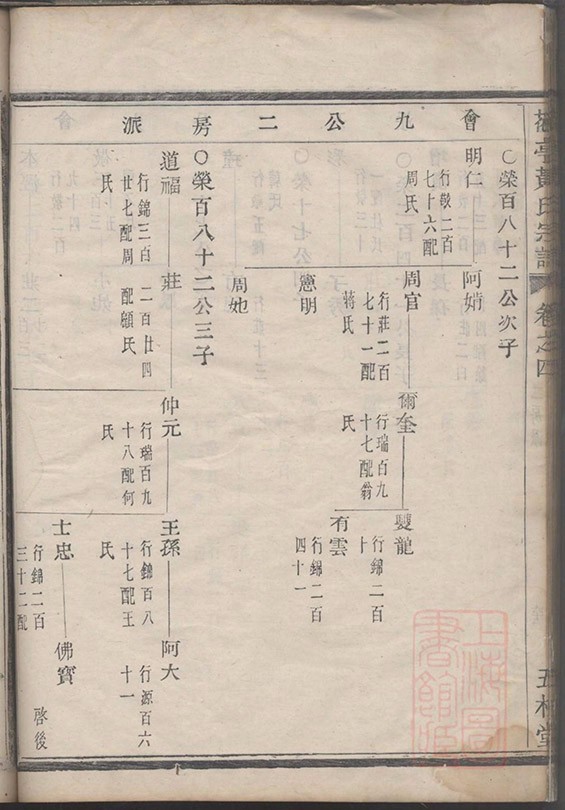 黃氏宗譜
卷之四
會九公二房派
○榮百八十二公次子
明仁
行敬二百
七十六配
周氏
阿婧
周官
行莊二百
七十一配
蔣氏
爾奎
行瑞百九
十七配翁
氏
夔龍
行錦二百
十
有雲
行錦二百
四十一
憲明
周她
○榮百八十二公三子
道福
行錦三百
廿七配周
氏
莊
二百廿四
配顧氏
仲元
行瑞百九
十八配何
氏
王孫
行錦百八
十七配王
氏
阿大
行源百六
十一
士忠
行錦二百
三十二配
佛寶
啓後
上海圖書館藏